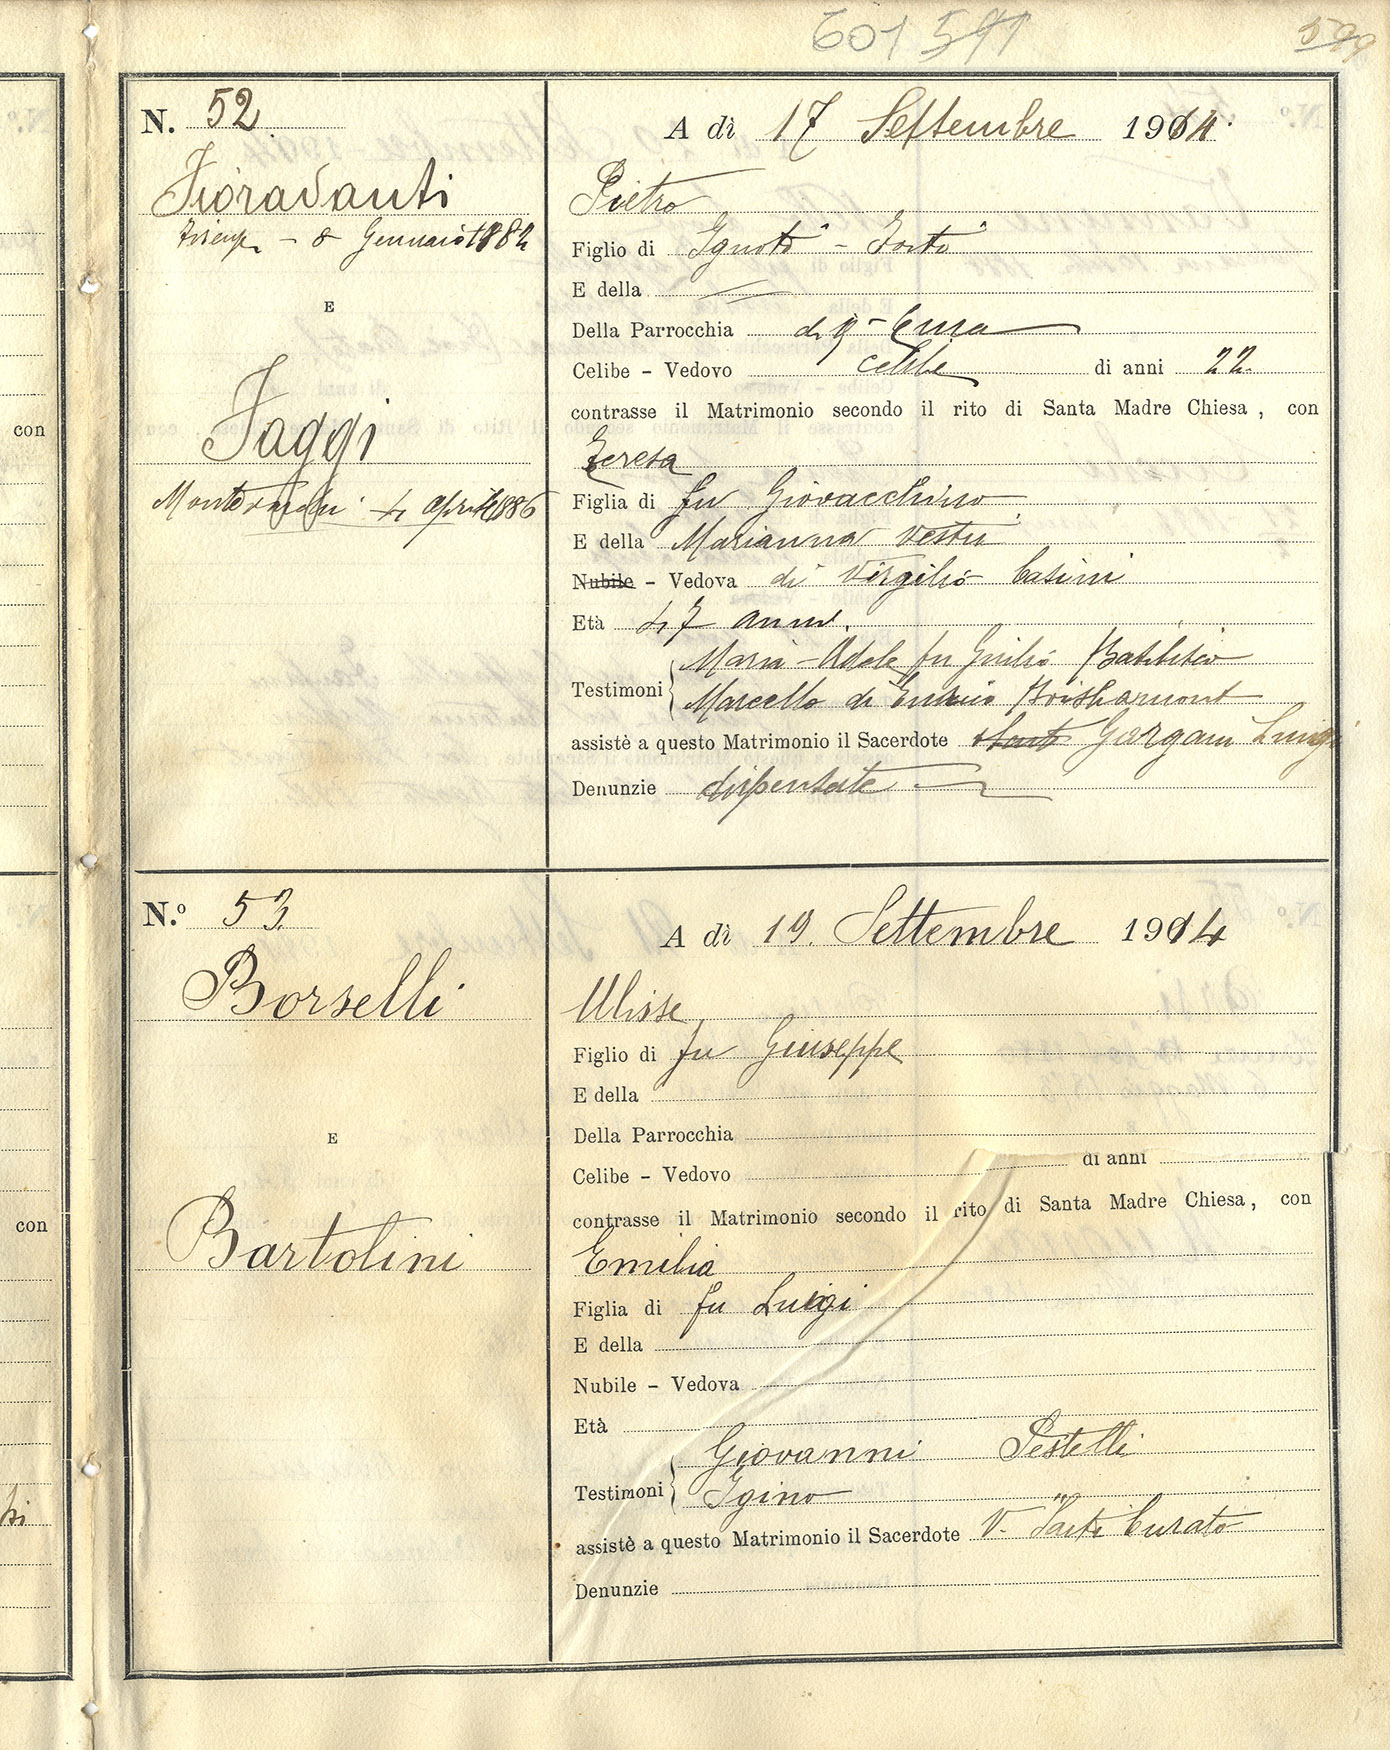 601 591
599
N. 52
A dì 17 Settembre 1914.
Fioravanti
Firenze - 8 Gennaio 1882
Pietro
Figlio di Ignoti -
E della
E
Della Parrocchia di q. Cura
Celibe - Vedovo celibe di anni 22
contrasse il Matrimonio secondo il rito di Santa Madre Chiesa, con
Faggi
Montevarchi 4 aprile 1886
Teresa
Figlia di fu Giovacchino
E della Marianna Vestri
Nubile - Vedova di Virgilio Casini
Età 47 anni.
Testimoni Maria-Adele fu Giulio
Marcello di
assistè a questo Matrimonio il Sacerdote Gargani Luigi
Denunzie dispensate
con
N.º 53.
A dì 19. Settembre 1914
Borselli
Ulisse
Figlio di fu Giuseppe
E della
E
Della Parrocchia
Celibe - Vedovo di anni
contrasse il Matrimonio secondo il rito di Santa Madre Chiesa, con
Bartolini
Emilia
Figlia di fu Luigi
E della
Nubile - Vedova
Età
Testimoni Giovanni Pestelli
Igino
assistè a questo Matrimonio il Sacerdote V. Curato
Denunzie
con